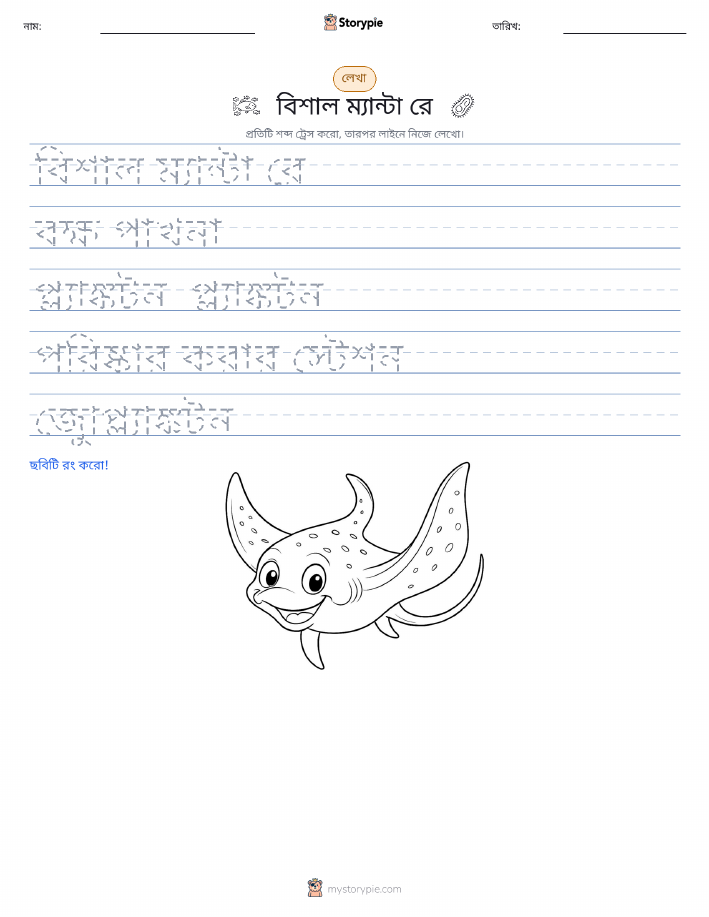 নাম:
Storypie
তারিখ:
লেখা
বিশাল ম্যান্টা রে
প্রতিটি শব্দ ট্রেস করো, তারপর লাইনে নিজে লেখো।
বিশাল ম্যান্টা রে
বক্ষ পাখনা
প্ল্যাঙ্কটন প্ল্যাঙ্কটন
পরিষ্কার করার স্টেশন
জুোপ্ল্যাঙ্কটন
ছবিটি রং করো!
mystorypie.com